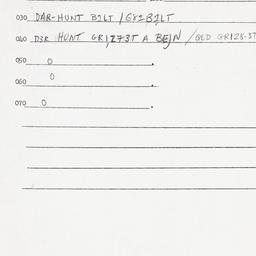 030 DAR-HUNT B2LT / G82B2LT
040 D3R HUNT GR1273T A BEJN / GED GR128-3T
050 0
060 0
070 0